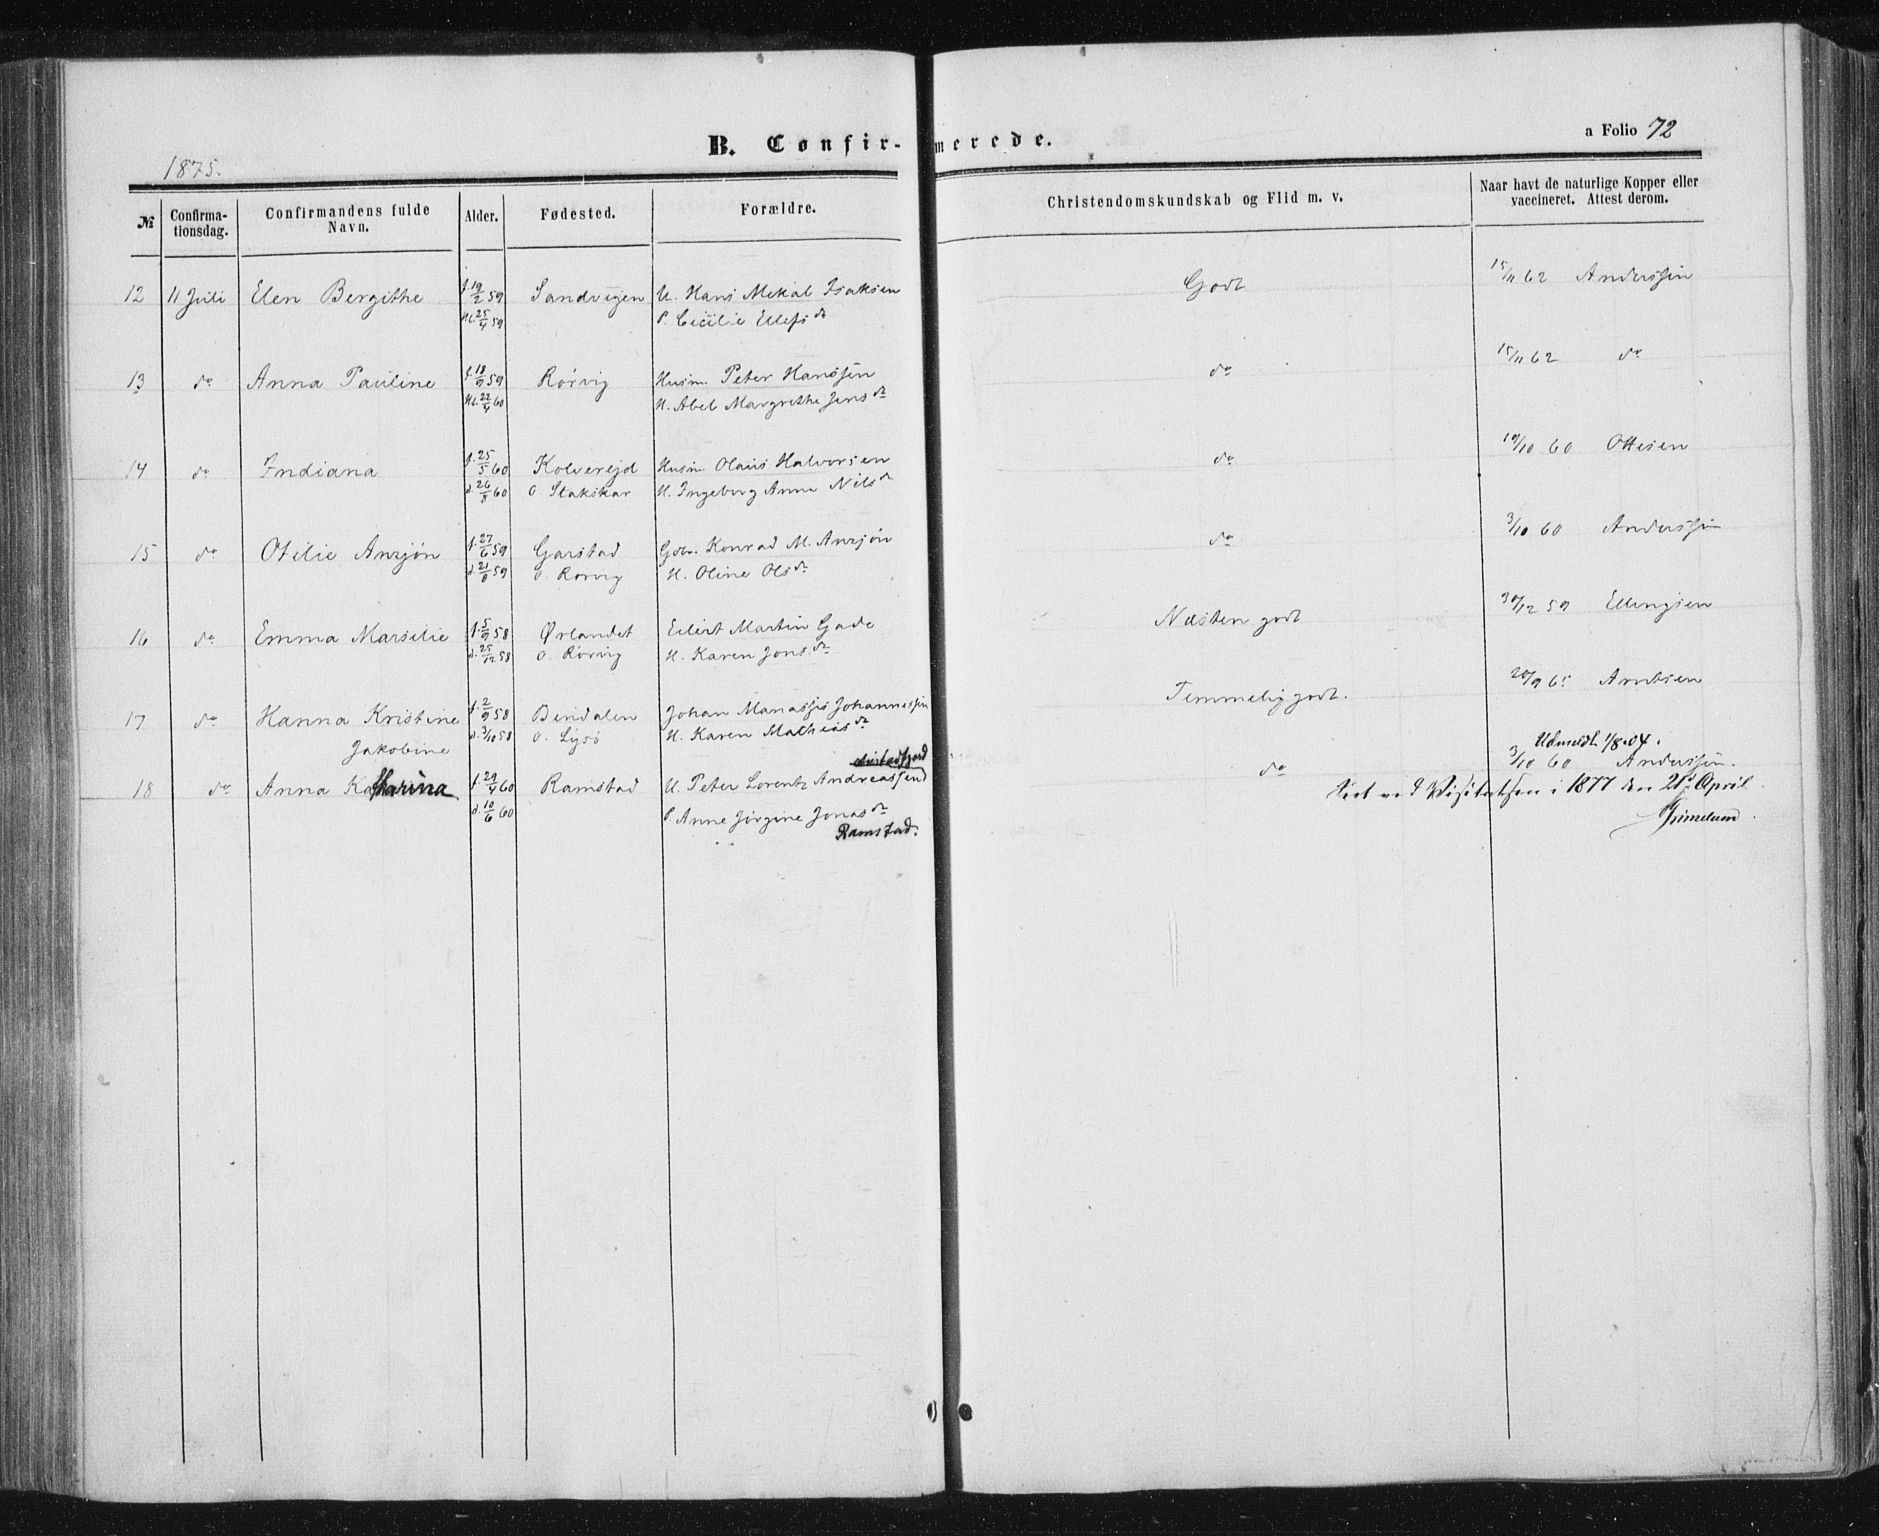 B. Confir-merede.
a Folio 72
1875.
№ Confirma-tionsdag. Confirmandens fulde Navn. Alder. Fødested. Forældre. Christendomskundskab og Flid m. v. Naar havt de naturlige Kopper eller vaccineret. Attest derom.
12 11 Juli Elen Bergithe f. 19/2 59 Sandvigen U. Hans Mekal Isaksen Godt 15/11 62 Anderssen
25/4 59 P. Cecilie Ellefsdr
13 do Anna Pauline f. 18/9 59 Rørvig Husm. Peter Hanssen do 15/11 62 do
22/4 60 H. Abel Margrethe Jensdr
14 do Indiana f. 25/5 60 Kolvereid Husm Olaus Halvorsen do 19/10 60 Ottesen
d. 26/8 60 O. Stakskar H. Ingeborg Anna Nilsdr
15 do Otilie Anzjøn f. 27/6 59 Garstad Gbr. Konrad M. Anzjøn do 3/10 60 Anderssen
d. 21/8 59 O. Rørvig H. Oline Olsdr
16 do Emma Marselie f. 5/9 58 Ørlandet Eilert Martin Gade Næsten godt 30/12 59 Ellingsen
d. 25/12 58 O. Rørvig H. Karen Jonsdr
17 do Hanna Kristine f. 2/9 58 Bindalen Johan Manasses Johannessen Temmelig godt. 20/9 65 Arntsen
Jakobine d. 3/10 58 O. Lysø H. Karen Mathiasdr
Udmeldt 1/8-04.
18 do Anna Katharina f. 29/4 60 Ramstad U. Peter Lorentz Andreassen do 3/10 60 Anderssen.
d. 10/6 60 P. Anne Jørgine Jonasdr
Ramstad.
Seet ved Visitatsen i 1877 den 21de April
Grimelund.